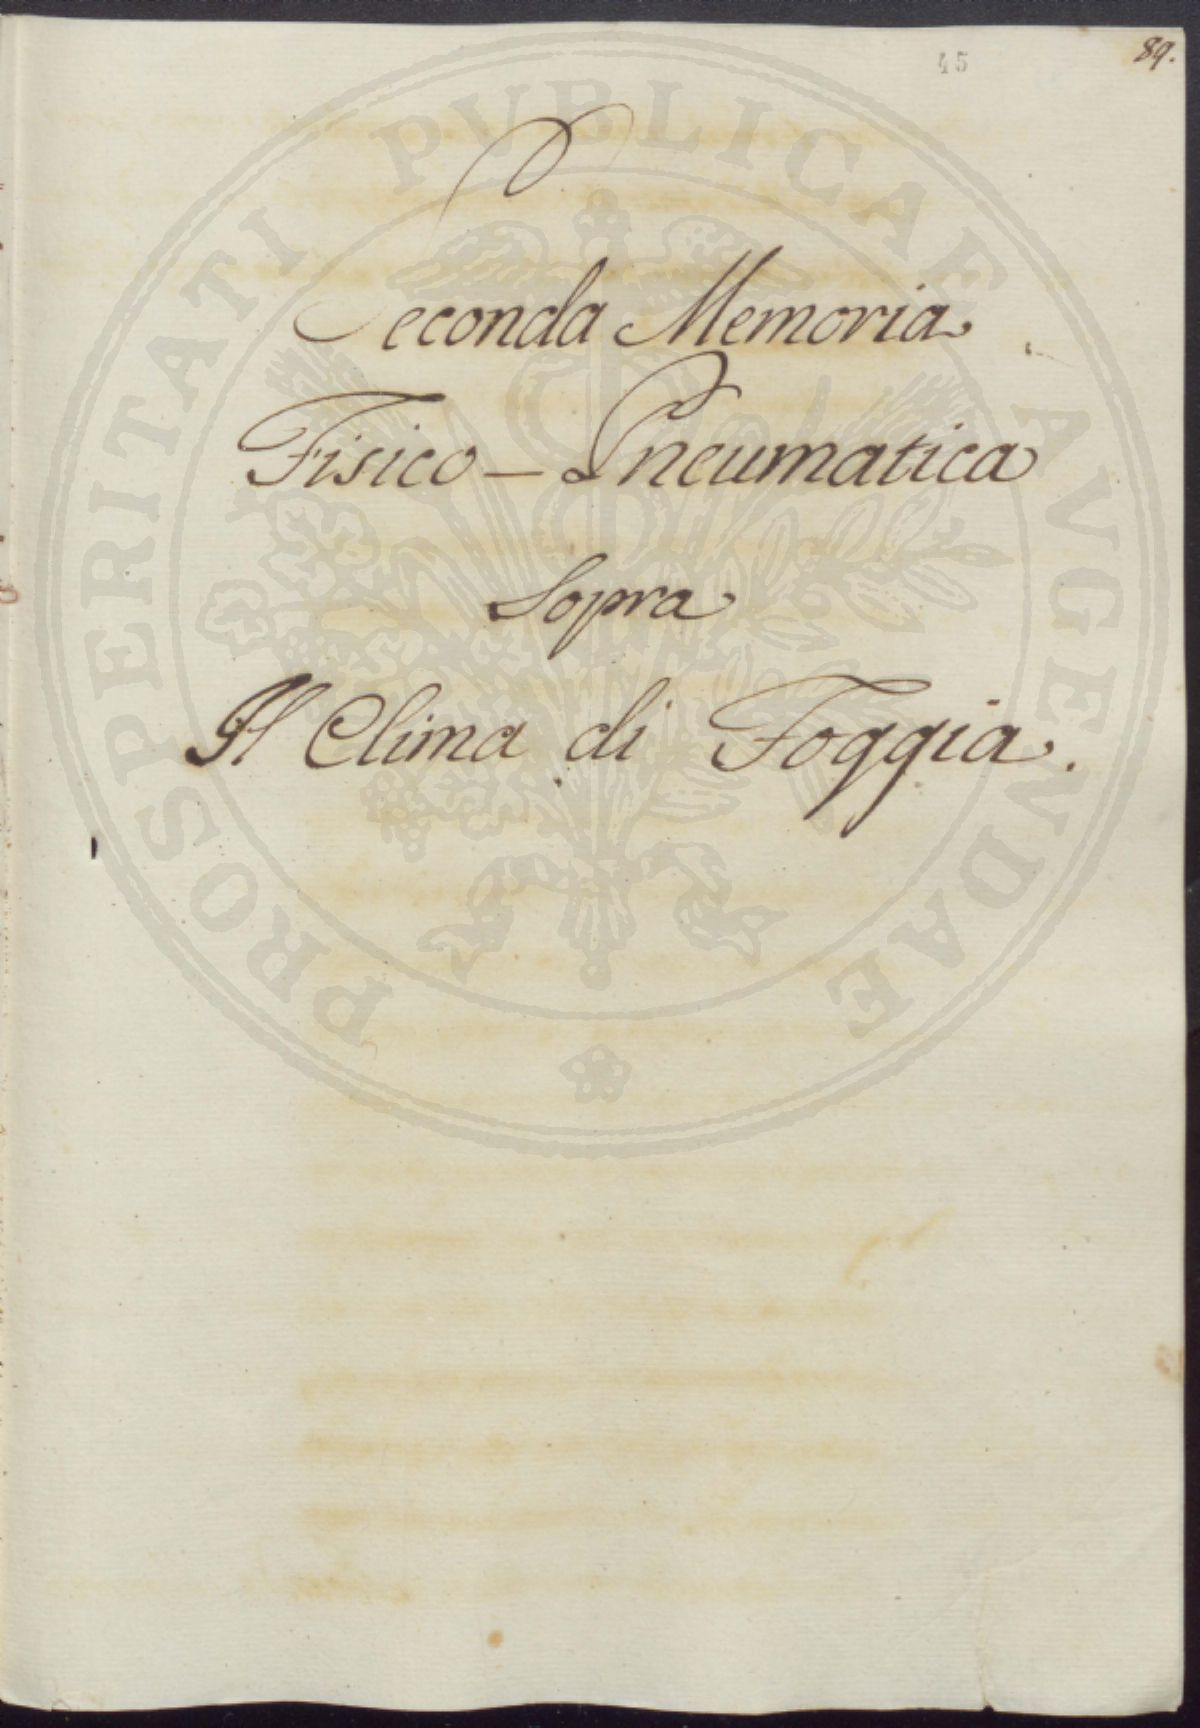 45
89.
PROSPERITATI PVBLICAE AVGENDAE
Seconda Memoria
Fisico-Pneumatica
Sopra
Il Clima di Foggia.